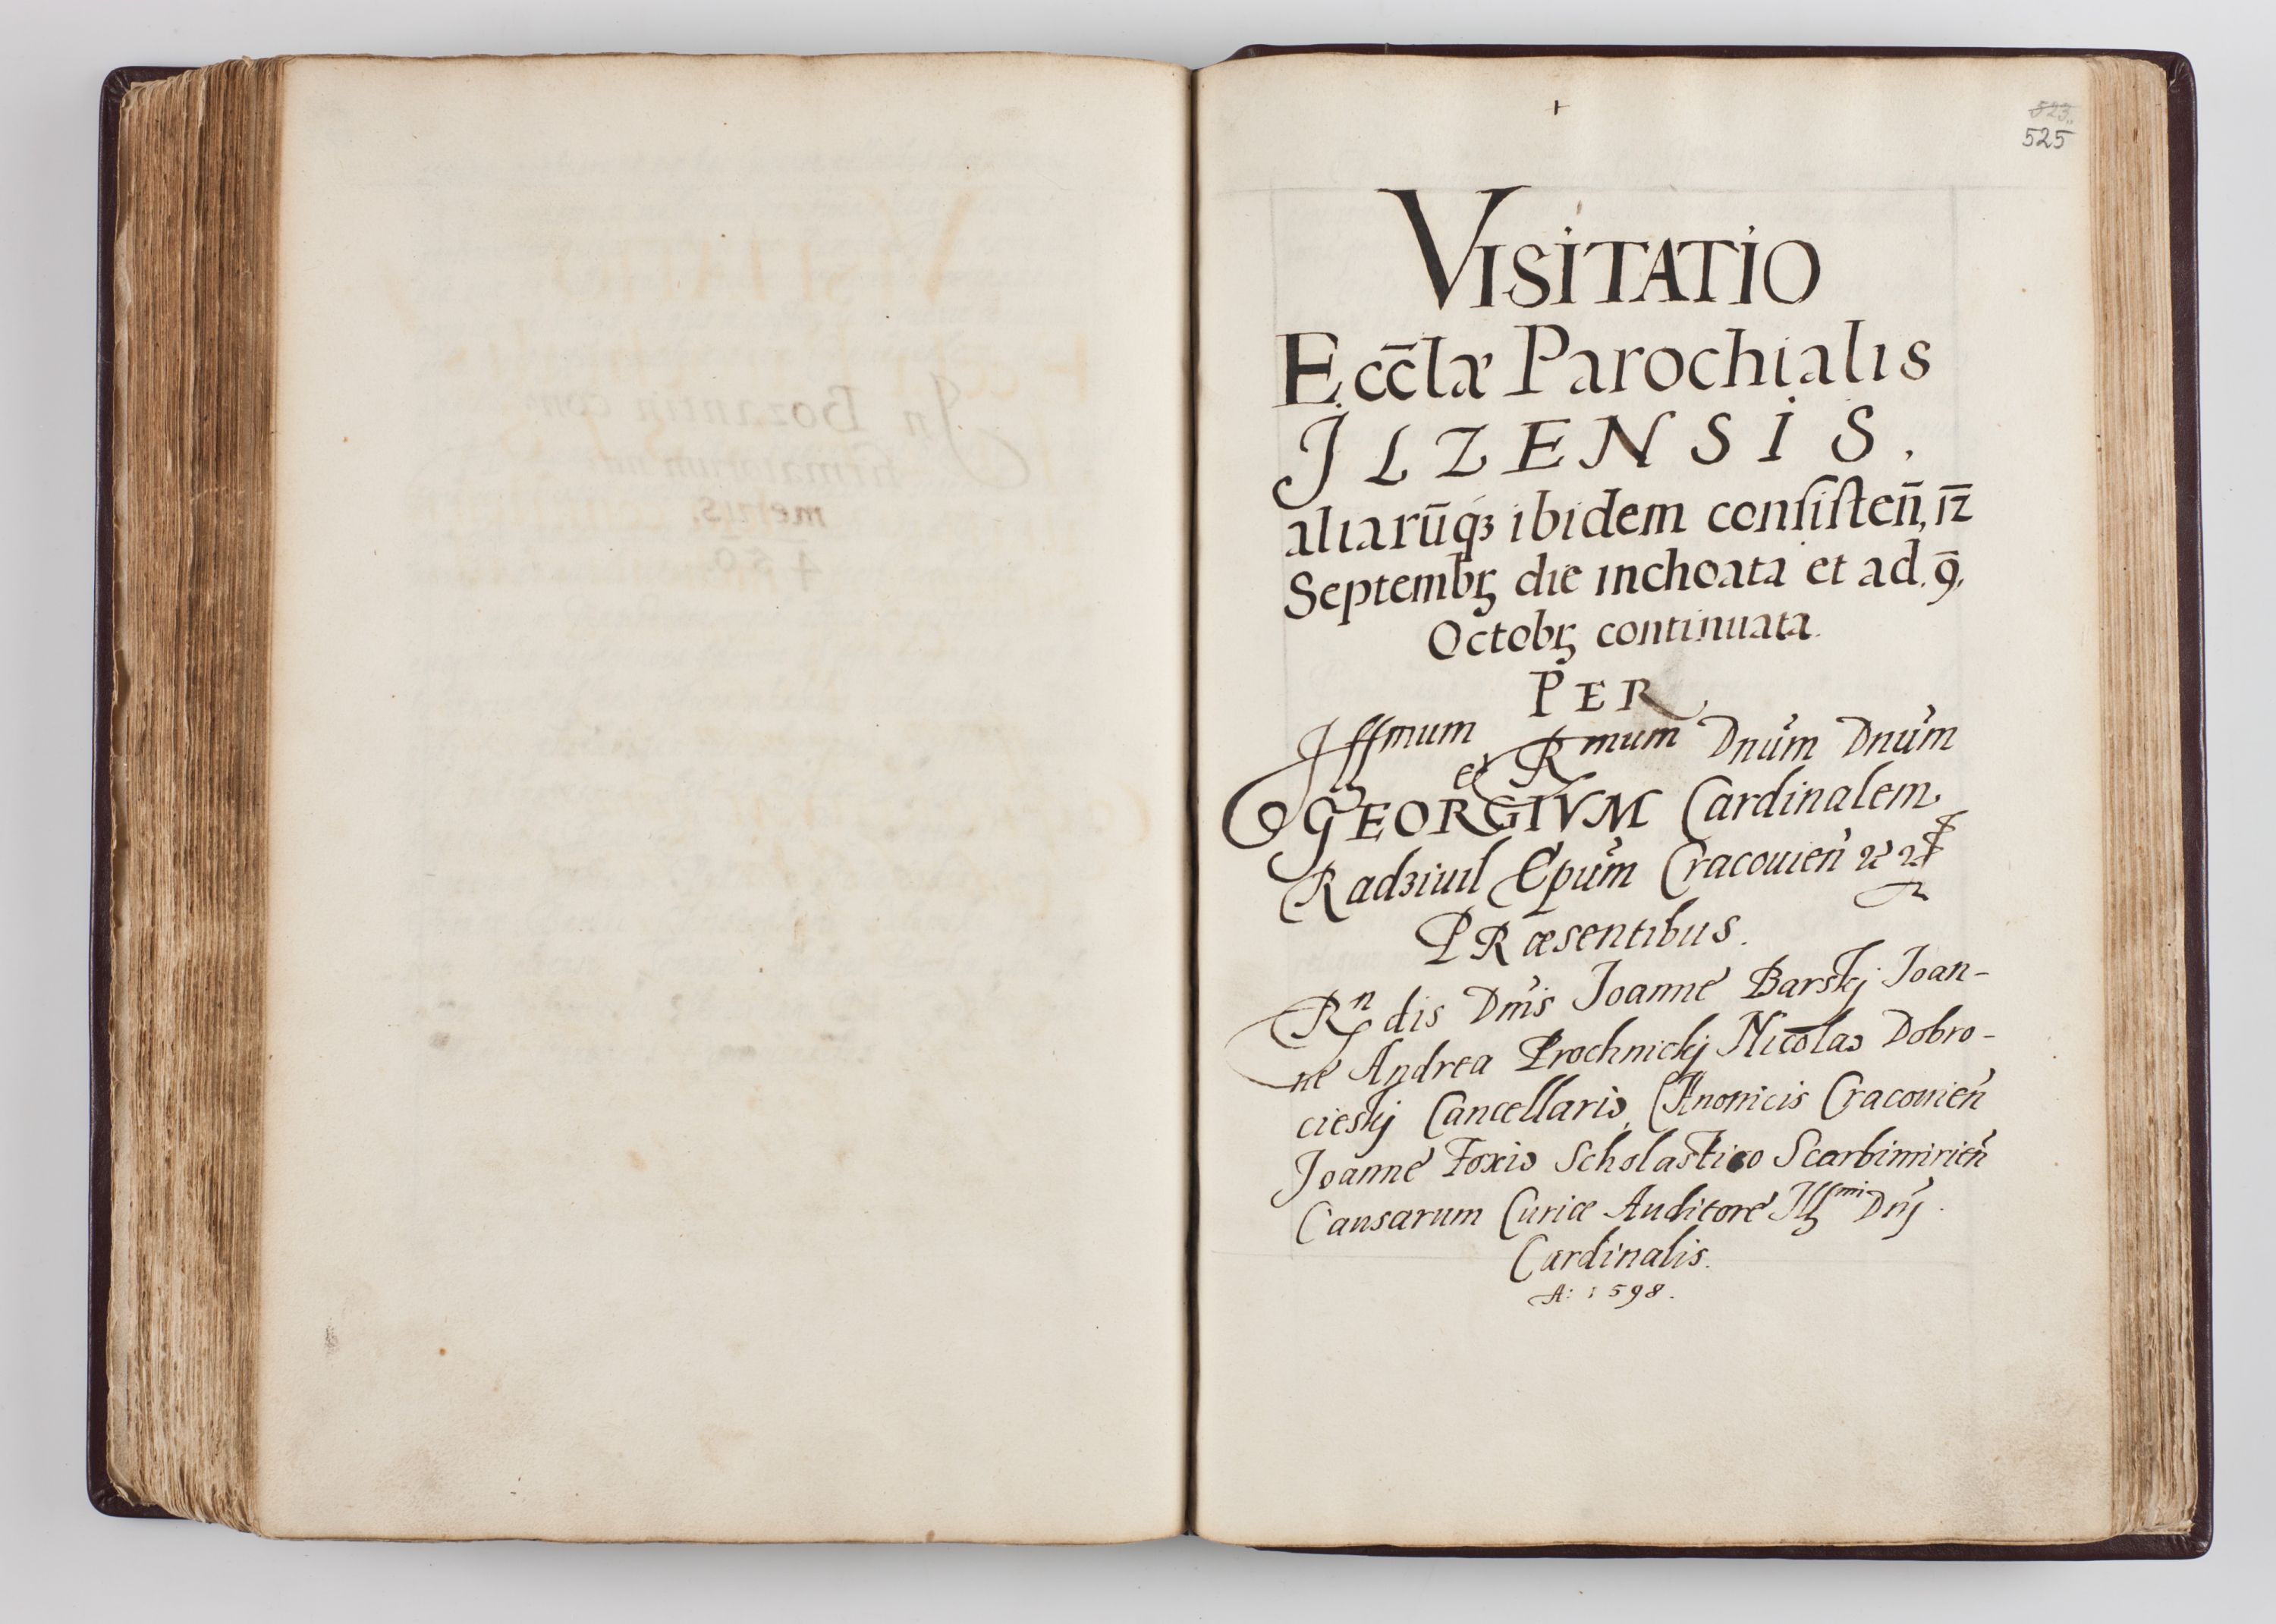 In Bozantin con
firmatorum nu
merus.
450
+
523
525
VISITATIO
Ecc̄læ Parochialis
JLZENSIS,
aliarūq₃ ibidem consisten̄, 1Z
Septembꝶ die inchoata et ad. 9,
Octobꝶ continuata.
PER
Jllſſmum et Rmum Dnūm Dnūm
GEORGIVM Cardinalem
Radziuil Epūm Cracouien̄
PRæsentibus.
Rndis Dnīs Joanne Barskj Joan-
ne Andrea Prochnickj Nicolao Dobro-
cieskj Cancellario, Canonicis Cracouien̄
Joanne Foxio Scholastico Scarbimirien̄
Causarum Curiæ Auditore Jllmi Dnj
Cardinalis.
A: 1598.